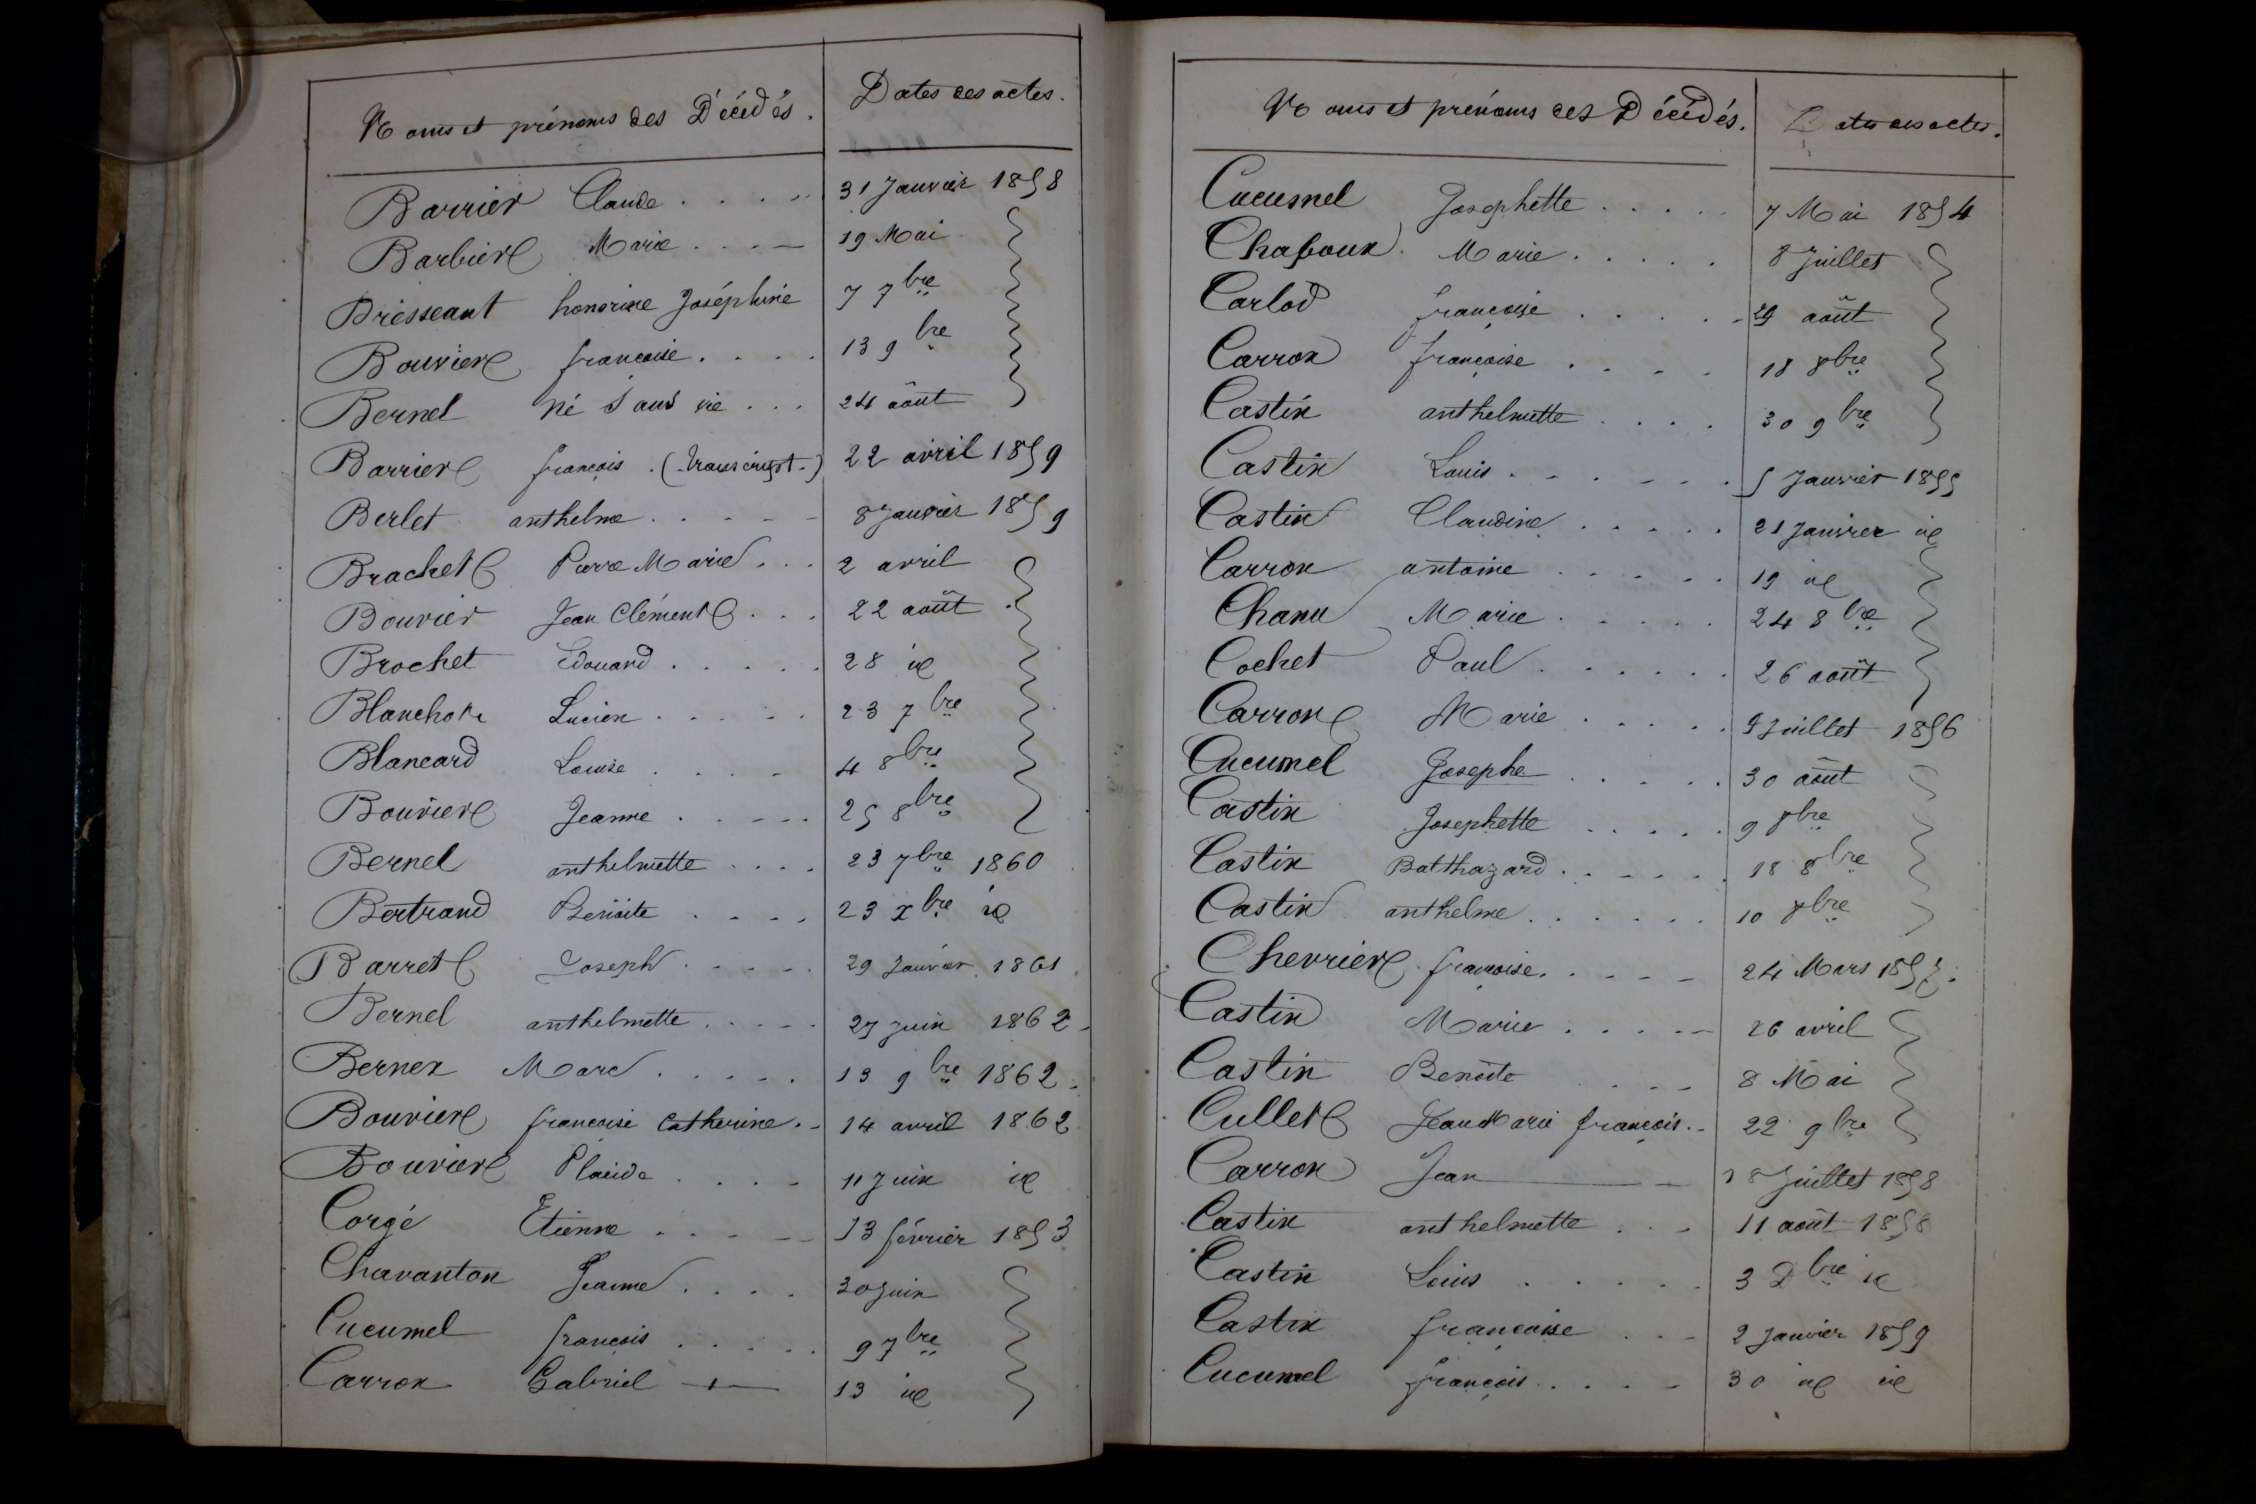 Noms et prénoms des Décédés. Dates des actes.
Barrier Claude . . . . . 31 Janvier 1858
Barbier Marie . . . — 19 Mai
Bresseant honorine Joséphine 7 7bre
Bouvier françoise . . . . 13 9bre
Bernel Né Sans vie . . . 24 août
Barrier françois . (transcript.) 22 avril 1859
Berlet anthelme . . . . . 8 Janvier 1859
Brachet Pierre Marie . . . 2 avril
Bouvier Jean Clément . . . 22 août
Brochet Edouard . . . . . 28 id
Blanchot Lucien . . . . . 23 7bre
Blancard Louise . . . . 4 8bre
Bouvier Jeanne . . . . . 25 8bre
Bernel anthelmette . . . . 23 7bre 1860
Bertrand Benoite . . . . 23 xbre id
Barret Joseph . . . . . 29 Janvier 1861
Bernel anthelmette . . . . . 27 Juin 1862
Bernex Marc . . . . . 13 9bre 1862
Bouvier françoise Catherine . - 14 avril 1862
Bouvier Placide . . . . 11 Juin id
Corgé Etienne . . . . — 13 février 1853
Chavanton Jeanne . . . . 30 Juin
Cucumel françois . . . . . 9 7bre
Carron Gabriel — 13 id
Noms et prénoms des Décédés. Dates des actes.
Cucumel Josephette . . . . . 7 Mai 1854
Chaboux Marie . . . . . 8 Juillet
Carlod françoise . . . . . 29 août
Carron françoise . . . . 18 8bre
Castin anthelmette . . . . 30 9bre
Castin Louis . . . . . . 5 Janvier 1855
Castin Claudine . . . . . 21 Janvier id
Carron antoine . . . . . . 19 id
Chanu Marie . . . . . 24 8bre
Cochet Paul . . . . . . 26 août
Carron Marie . . . . . Juillet 1856
Cucumel Josephe . . . . . 30 août
Castin Josephette . . . . . 9 8bre
Castin Balthazard . . . . . . 18 8bre
Castin anthelme . . . . . . 10 8bre
Chevrier françoise . . . . — 24 Mars 1857.
Castin Marie . . . . — 26 avril
Castin Benoite . . — 8 Mai
Cullet Jean Marie françois . - 22 9bre
Carron Jean — 8 Juillet 1858
Castin anthelmette . . - 11 août 1858
Castin Louis . . . . . 3 Dbre id
Castin françoise . . - 2 Janvier 1859
Cucumel françois . . . . - 30 id id